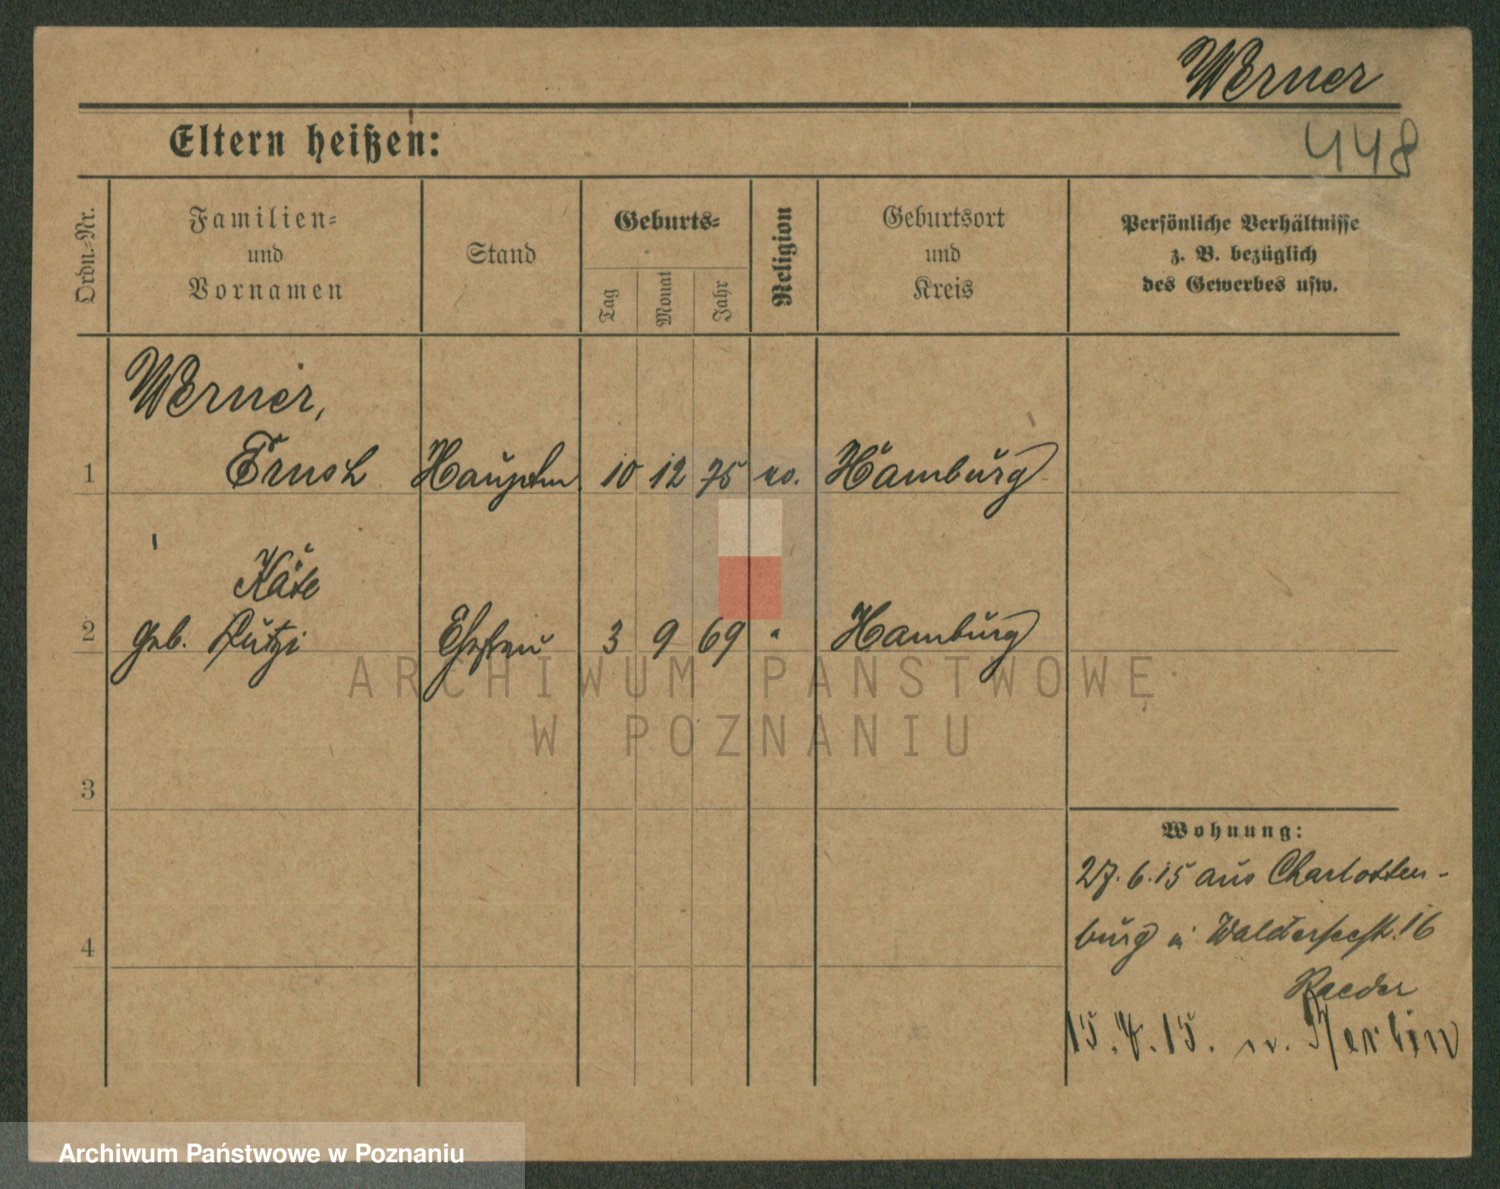 Werner
448
Eltern heißen:
Ordn.-Nr.
Familien-
und
Vornamen
Stand
Geburts-
Tag
Monat
Jahr
Religion
Geburtsort
und
Kreis
Persönliche Verhältnisse
z. B. bezüglich
des Gewerbes usw.
Werner,
1 Ernst Hauptm. 10 12 75 ev. Hamburg
Käte
2 geb. Ehefrau 3 9 69 " Hamburg
3
4
Wohnung:
27.6.15 aus Charlotten-
burg n. Walderseestr. 16
Raeder
15. 15. n. Berlin
ARCHIWUM PAŃSTWOWE
W POZNANIU
Archiwum Państwowe w Poznaniu